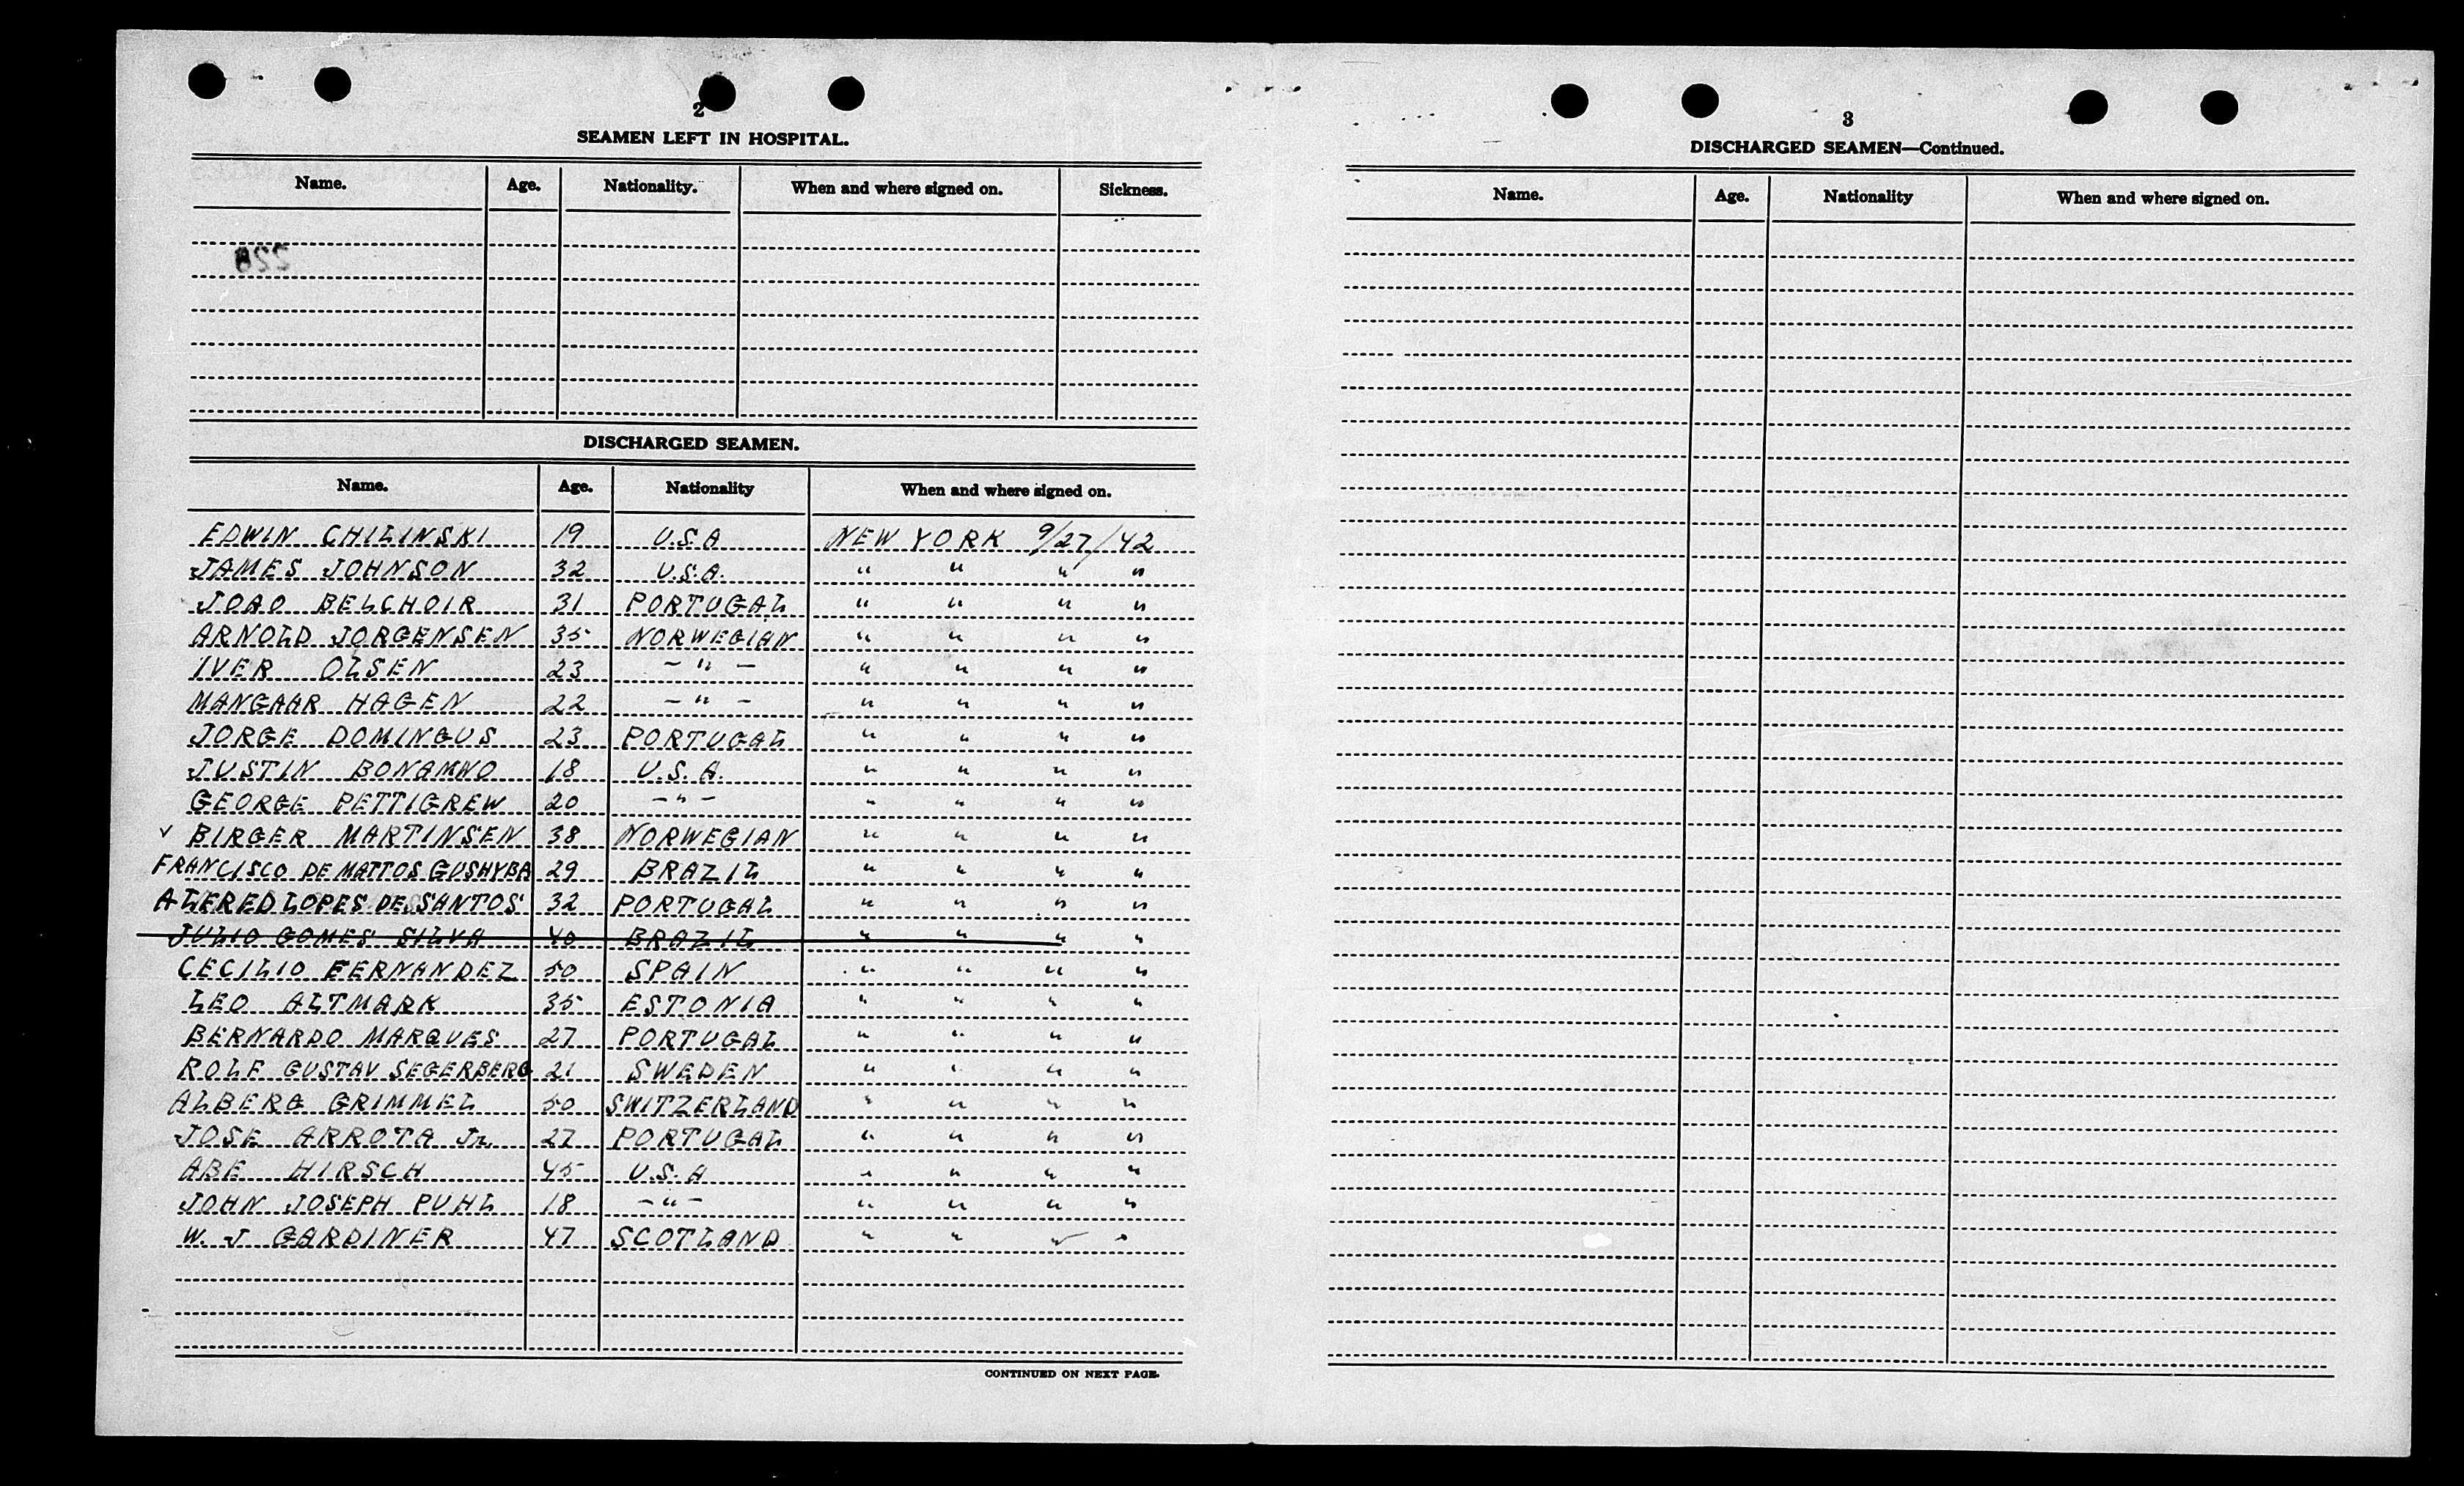 2
SEAMEN LEFT IN HOSPITAL.
Name. Age. Nationality. When and where signed on. Sickness.
228
DISCHARGED SEAMEN.
Name. Age. Nationality When and where signed on.
EDWIN CHILINSKI 19 U.S.A NEW YORK 9/27/42
JAMES JOHNSON 32 U.S.A. " " " "
JOAO BELCHOIR 31 PORTUGAL " " " "
ARNOLD JORGENSEN 35 NORWEGIAN " " " "
IVER OLSEN 23 - " - " " " "
MANGAAR HAGEN 22 - " - " " " "
JORGE DOMINGUS 23 PORTUGAL " " " "
JUSTIN BONAMWO 18 U.S.A. " " " "
GEORGE PETTIGREW 20 - " - " " " "
v BIRGER MARTINSEN 38 NORWEGIAN " " " "
FRANCISCO DE MATTOS GUSHYBA 29 BRAZIL " " " "
ALFRED LOPES DE SANTOS 32 PORTUGAL " " " "
JULIO GOMES SILVA 40 BRAZIL " " " "
CECILIO FERNANDEZ 50 SPAIN " " " "
LEO ALTMARK 35 ESTONIA " " " "
BERNARDO MARQUES 27 PORTUGAL " " " "
ROLF GUSTAV SEGERBERG 21 SWEDEN " " " "
ALBERG GRIMMEL 50 SWITZERLAND " " " "
JOSE ARROTA Jr. 27 PORTUGAL " " " "
ABE HIRSCH 45 U.S.A " " " "
JOHN JOSEPH PUHL 18 - " - " " " "
W. J GARDINER 47 SCOTLAND " " " "
CONTINUED ON NEXT PAGE.
3
DISCHARGED SEAMEN—Continued.
Name. Age. Nationality When and where signed on.